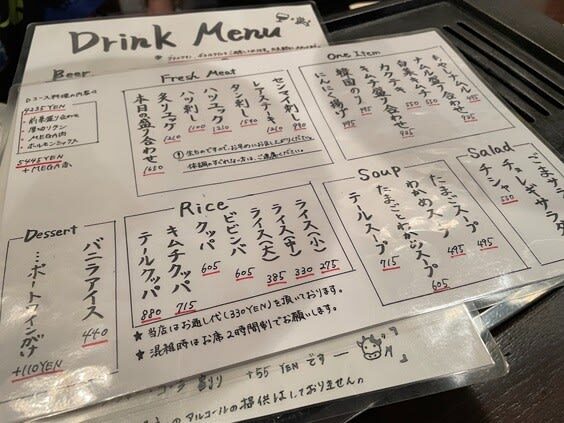 Drink Menu
Beer
Dコース料理の内容は
4235YEN
・前菜盛り合わせ
・厚切りタン
・MEGA肉
・ホルモンミックス
5445YEN
+MEGA
Fresh Meat
センマイ刺し 990
レアステーキ 1210
タン刺し 1540
ハツユッケ 1210
ハツ刺し 1100
炙りユッケ 1210
本日の盛り合わせ 1650
One Item
ナムル盛り合わせ 935
白菜キムチ 550
カクテキ 550
キムチ盛り合わせ 935
韓国のり
にんにく揚げ 495
Rice
ライス(小) 275
ライス(中) 330
ライス(大) 385
ビビンバ 605
クッパ 605
キムチクッパ 715
テールクッパ 880
Soup
たまごスープ 495
わかめスープ 495
たまごとわかめスープ 605
テールスープ 715
Salad
ごまサラ
チョレギサラダ
チシャ 550
Dessert
バニラアイス 440
…ポートワインがけ +110YEN
★ 当店はお通し代(330YEN)を頂いております。
★ 混雑時はお席2時間制でお願いします。
+55 YEN です
のアルコールの提供はしておりません。